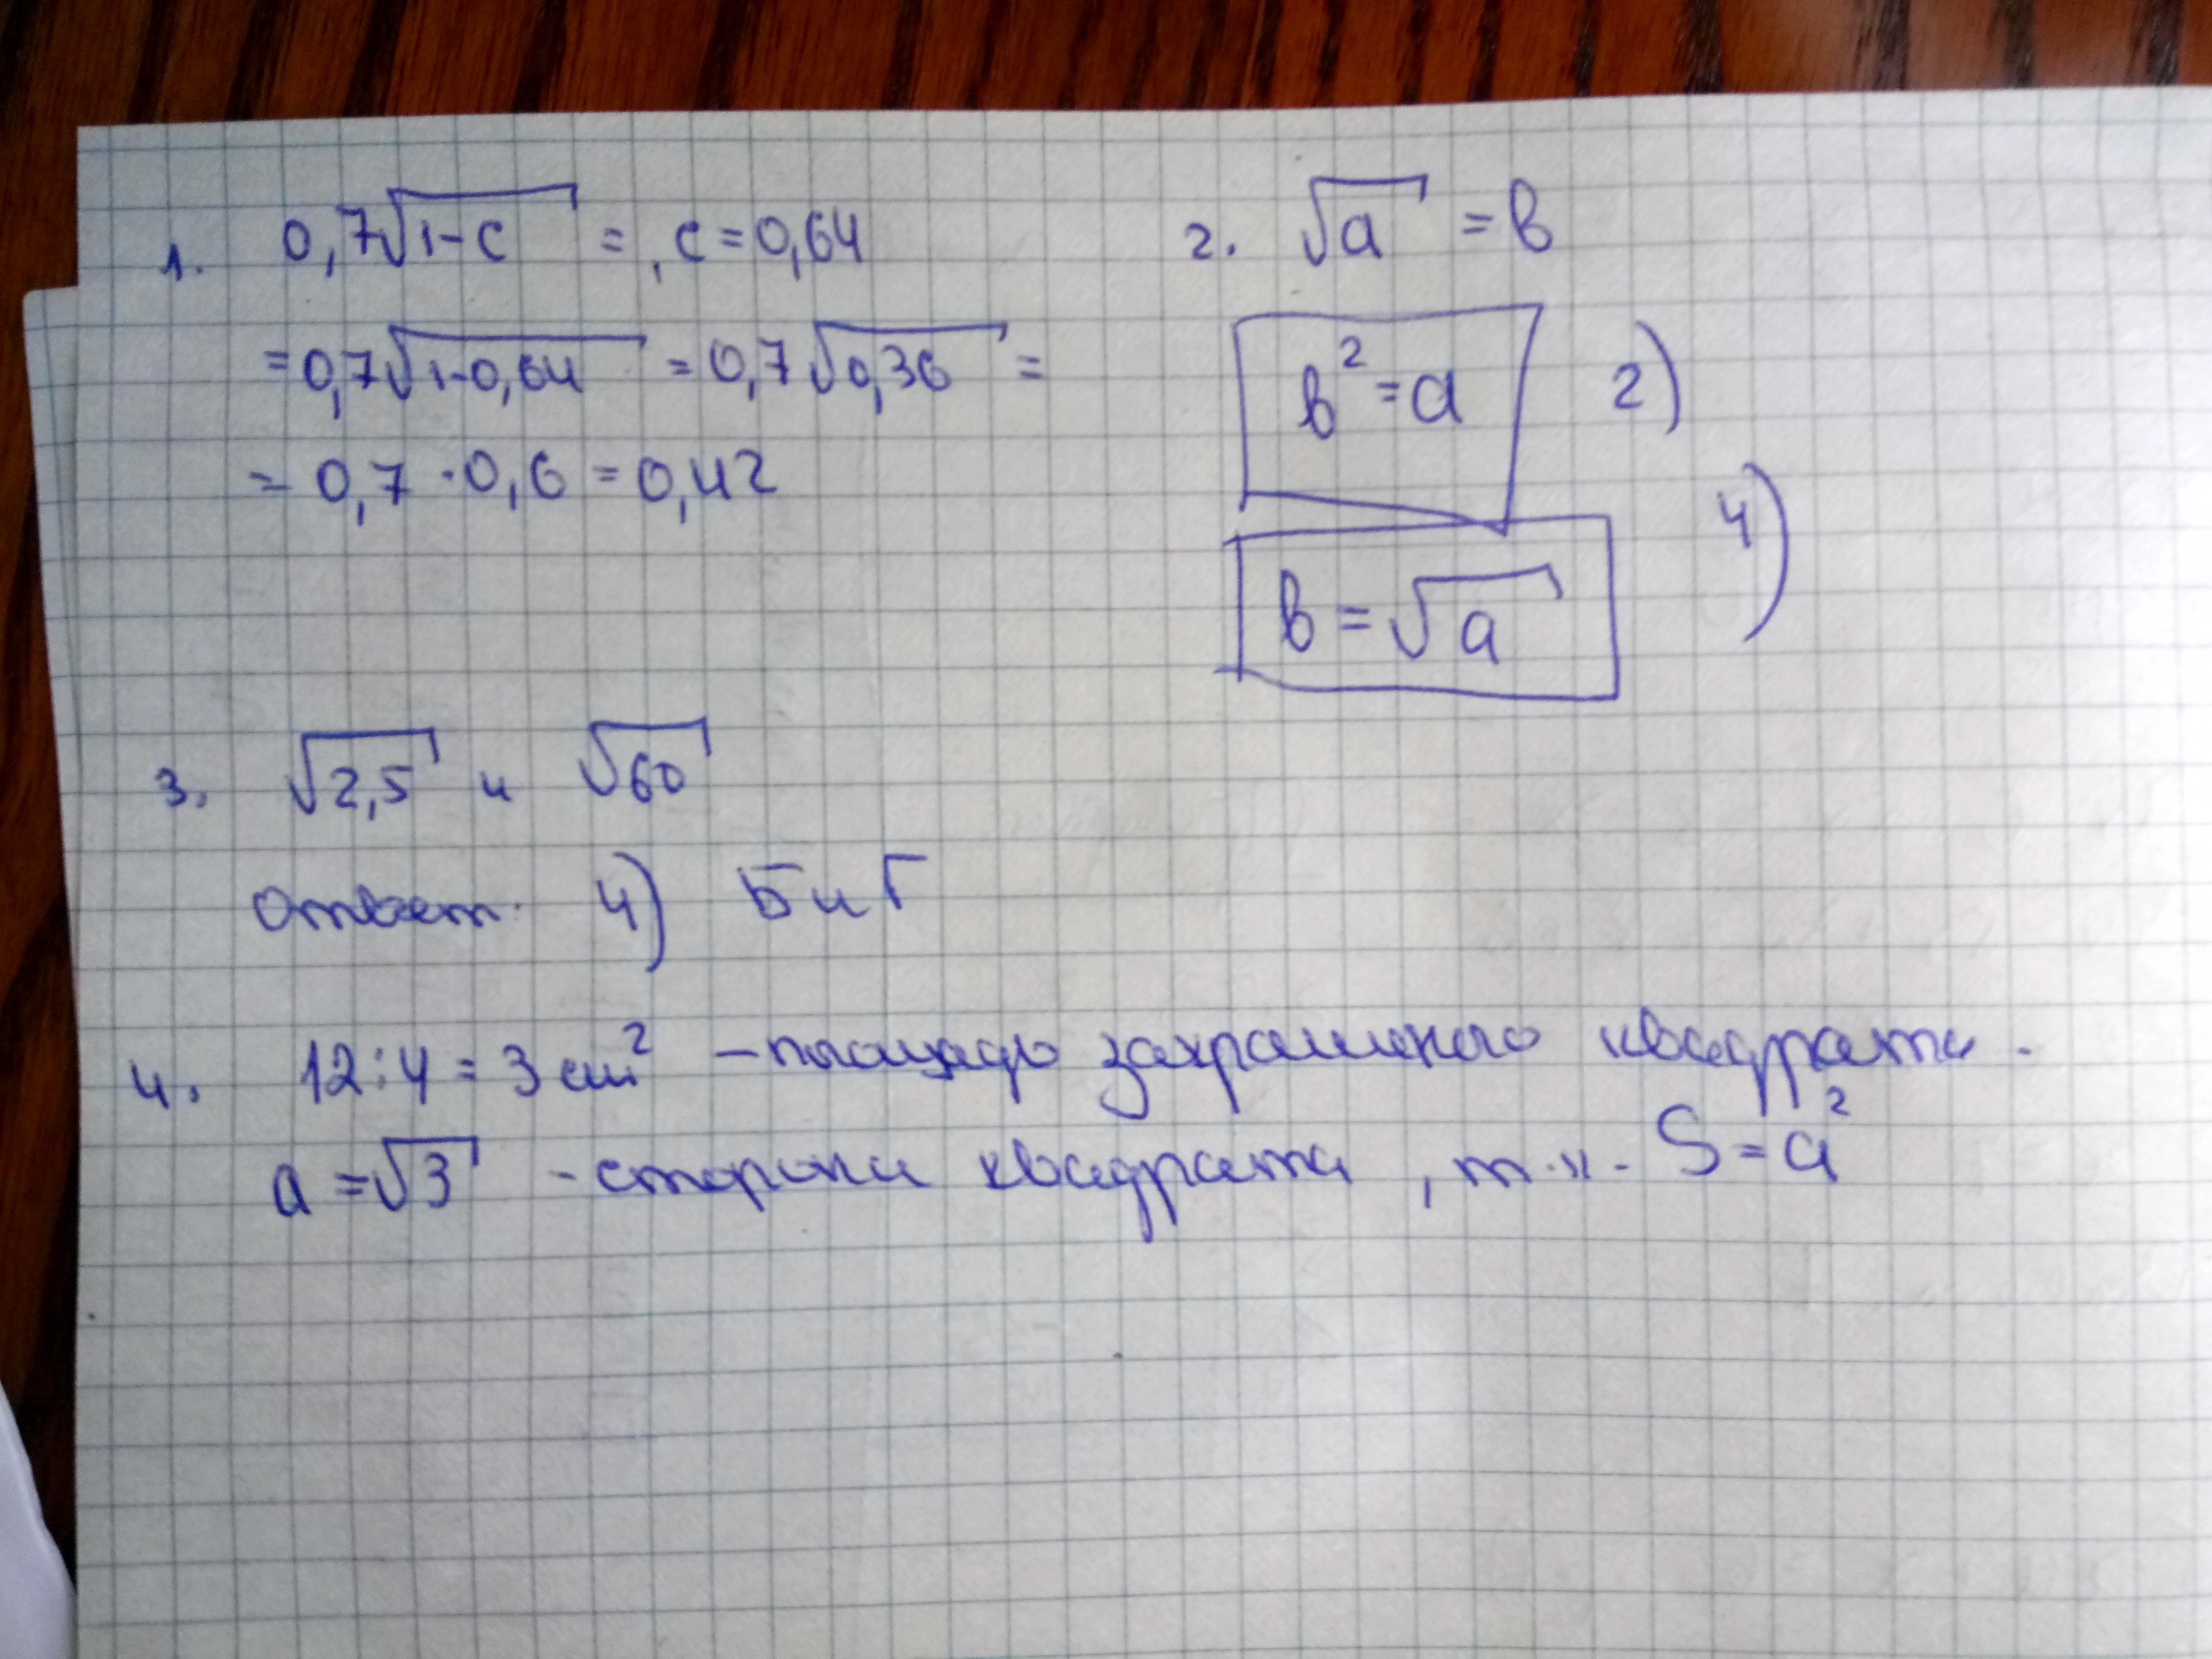 1. 0,7√1-c = , c = 0,64
= 0,7√1-0,64 = 0,7√0,36 =
= 0,7 · 0,6 = 0,42
2. √a = b
b² = a 2)
b = √a 4)
3. √2,5 и √60
Ответ. 4) Б и Г
4. 12 : 4 = 3 см² – площадь закрашеного квадрата.
a = √3 - сторона квадрата, т.к. S = a²